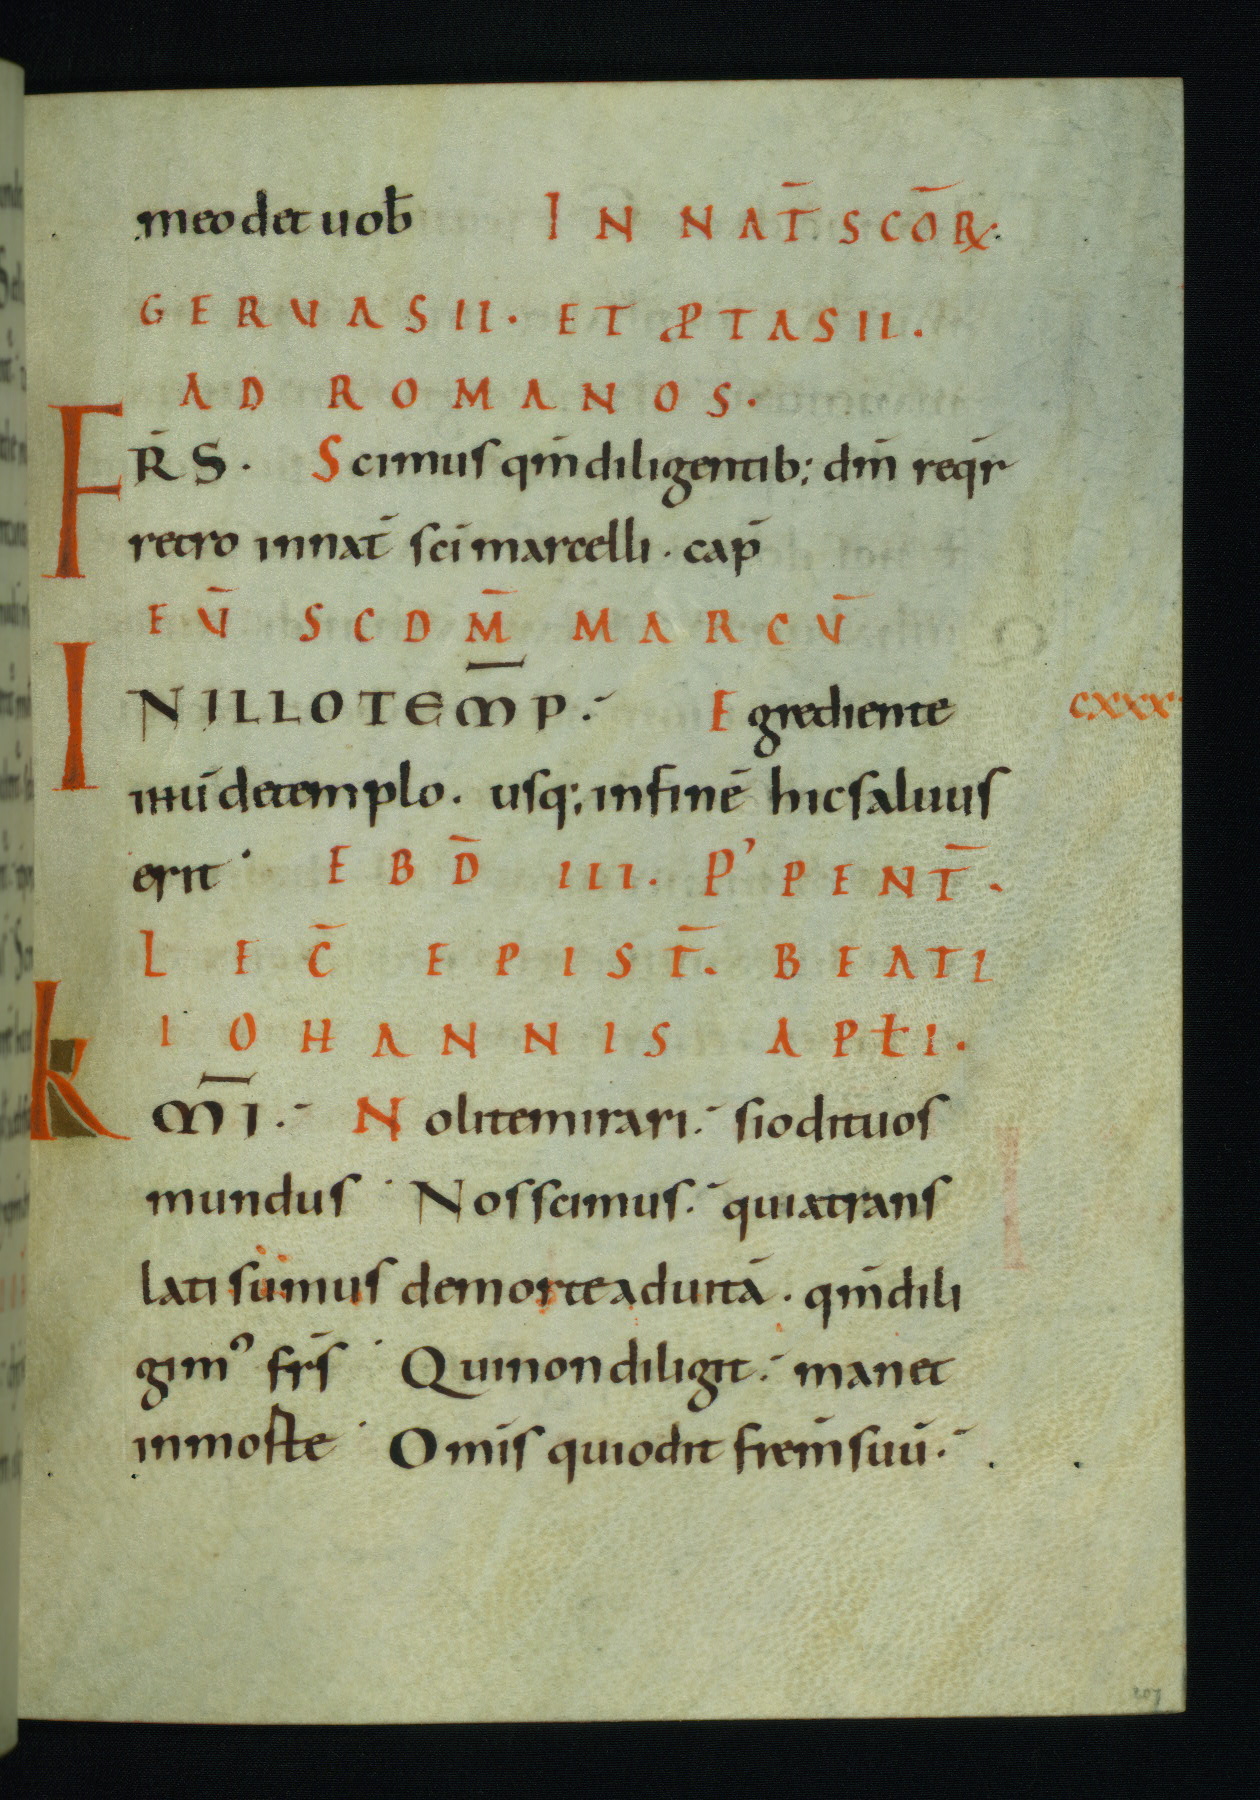 meo det uob̄ IN NAT̄ SCŌR̨.
GERUASII. ET PTASII.
AD ROMANOS.
FR̄S. Scimus qm̄ diligentib; dm̄ reqr̄
retro in nat̄ sci marcelli. cap̄
EŪ SCDM̄ MARCŪ
IN ILLO TEM̄P. Egrediente CXXX
ihū de templo. usq; in finē hic saluus
erit EBD̄ III. P' PENT̄.
LEC̄ EPIST̄. BEATI
IOHANNIS APŁI.
KM̄I. Nolite mirari. si odit uos
mundus Nos scimus. quia trans
lati sumus de morte ad uitā. qm̄ dili
gim' fr̄s Qui non diligit. manet
in morte Om̄is qui odit frem̄ suū.
207